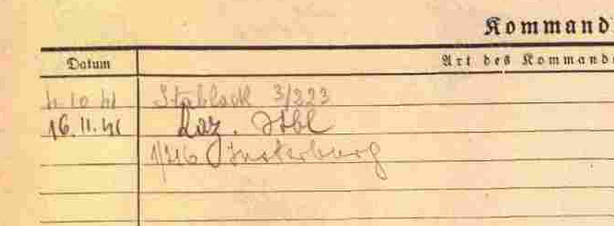 Kommand
Datum Art des Kommand
4.10.41 Stablack 3/223
16.11.41 Laz. Stbl
1/216 Insterburg